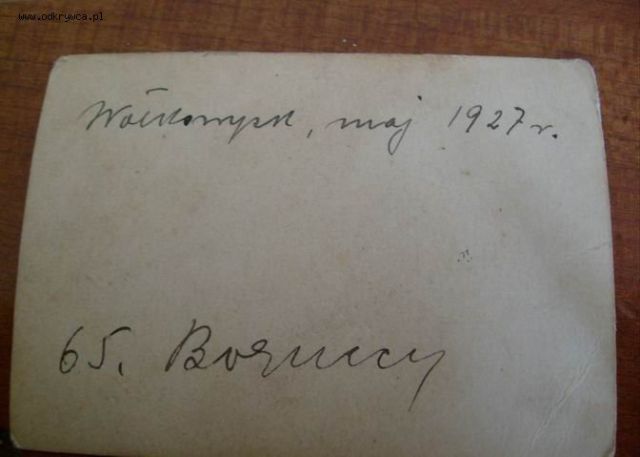 www.odkrywca.pl
Wołkowysk, maj 1927 r.
65.